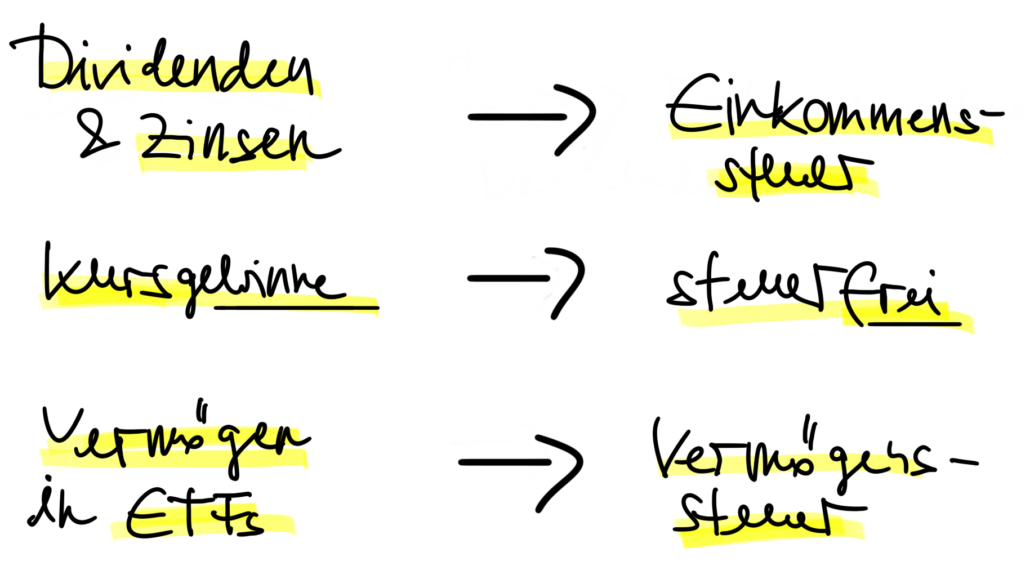 Dividenden
& Zinsen → Einkommens-
steuer
Kursgewinne → steuerfrei
Vermögen
in ETFs → Vermögens-
steuer